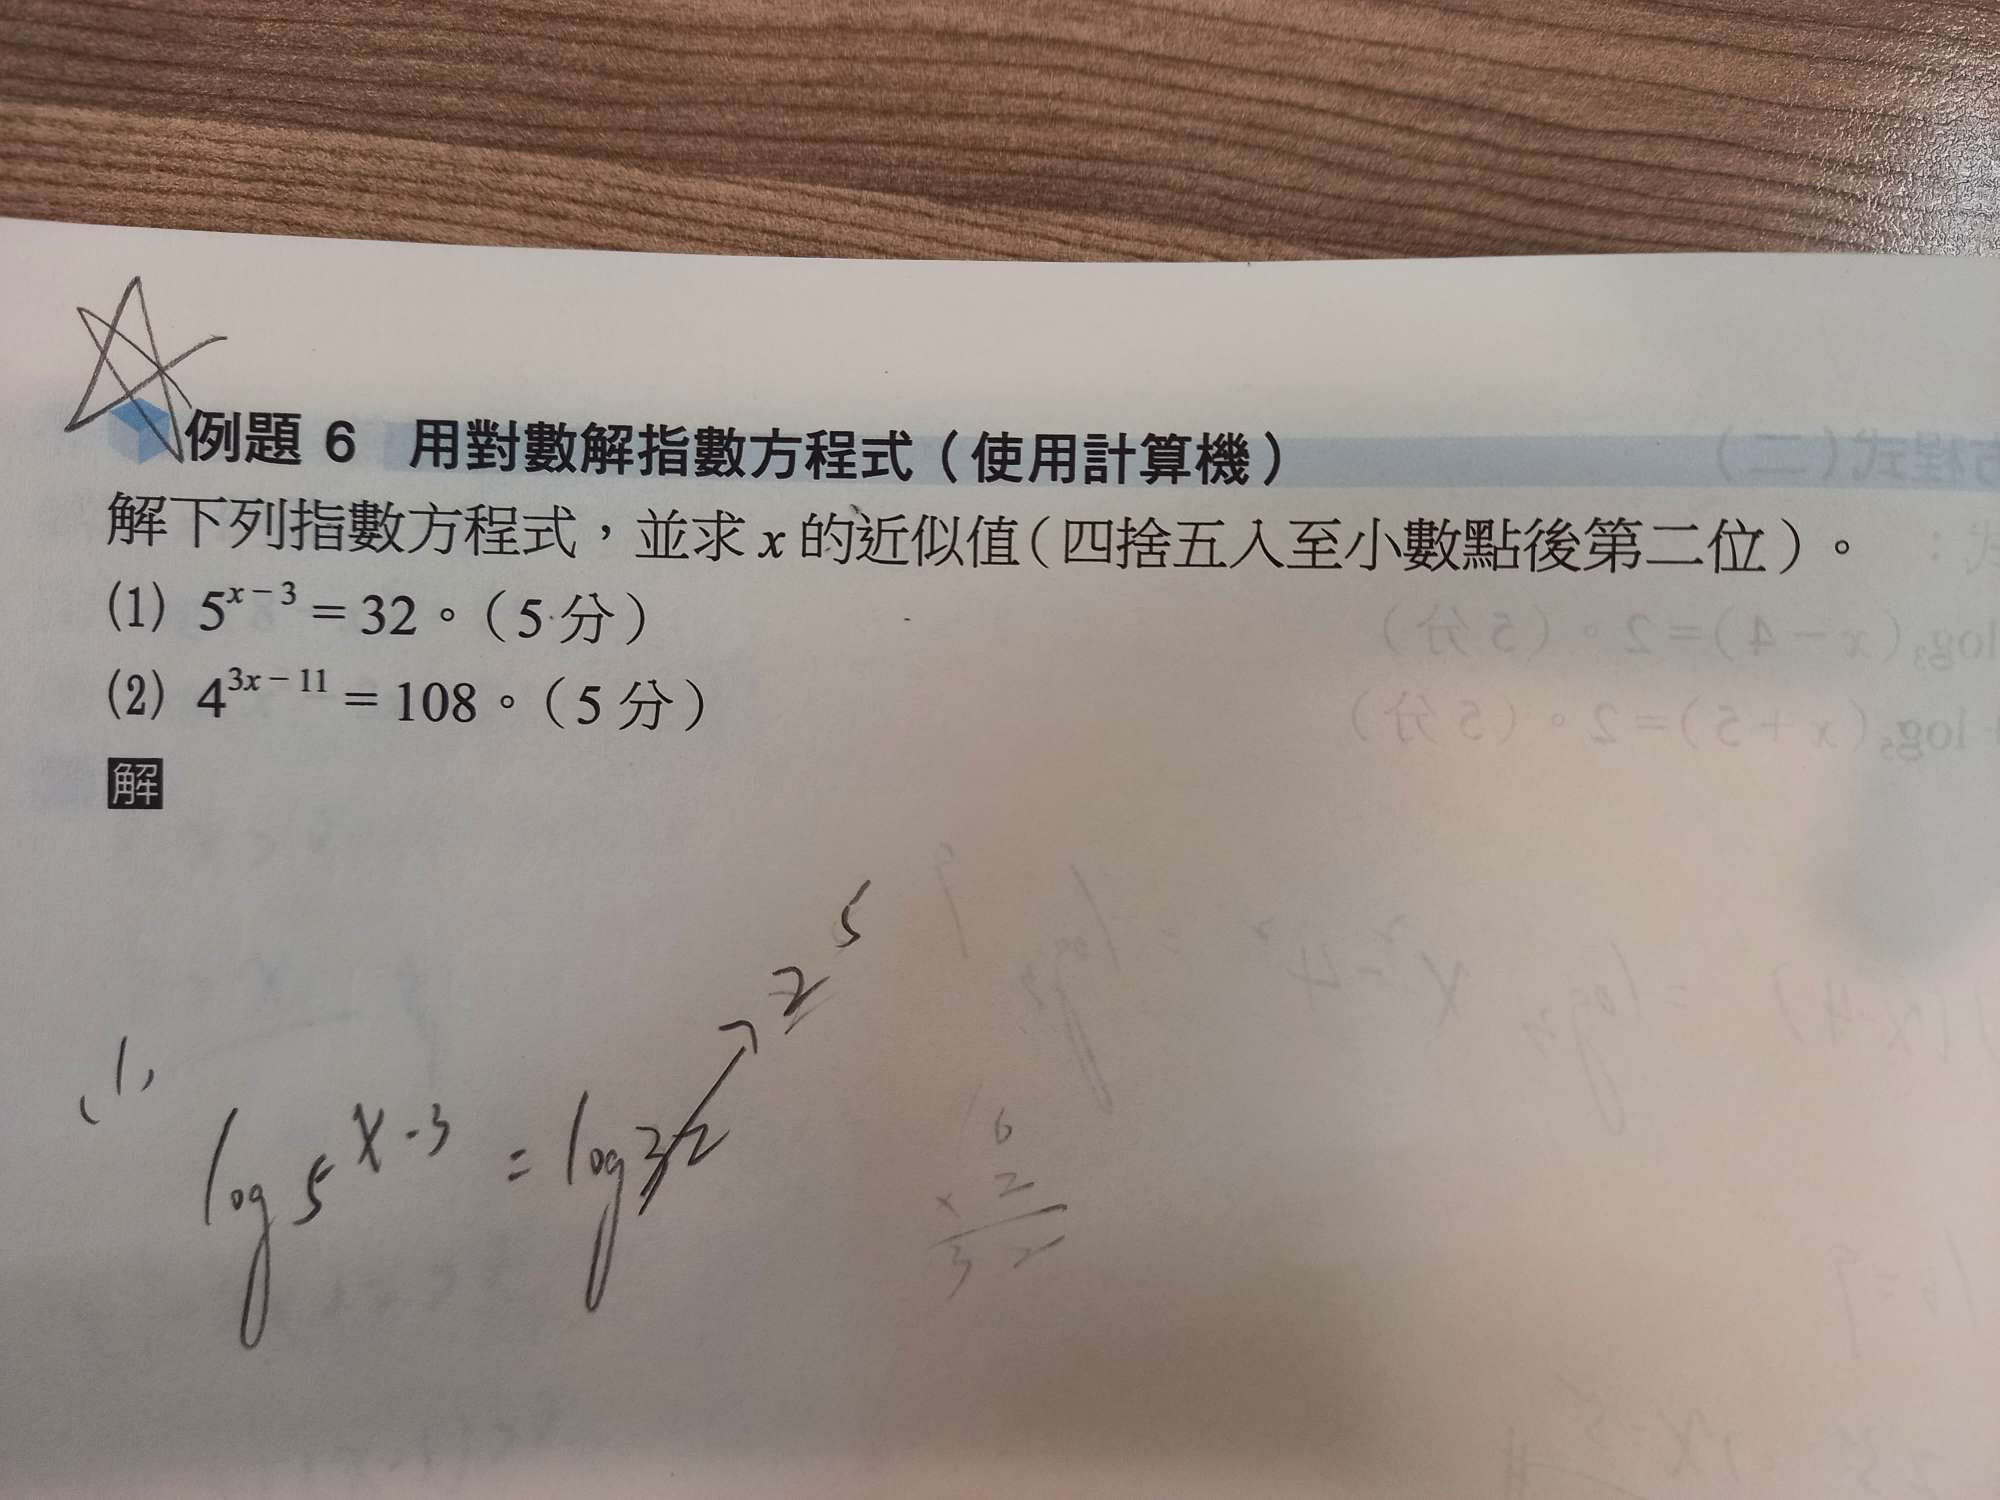 例題 6 用對數解指數方程式（使用計算機）
解下列指數方程式，並求 x 的近似值（四捨五入至小數點後第二位）。
(1) 5^{x-3} = 32。（5 分）
(2) 4^{3x-11} = 108。（5 分）
解
(1) log 5^{x-3} = log 32 → 2^5
16
× 2
32